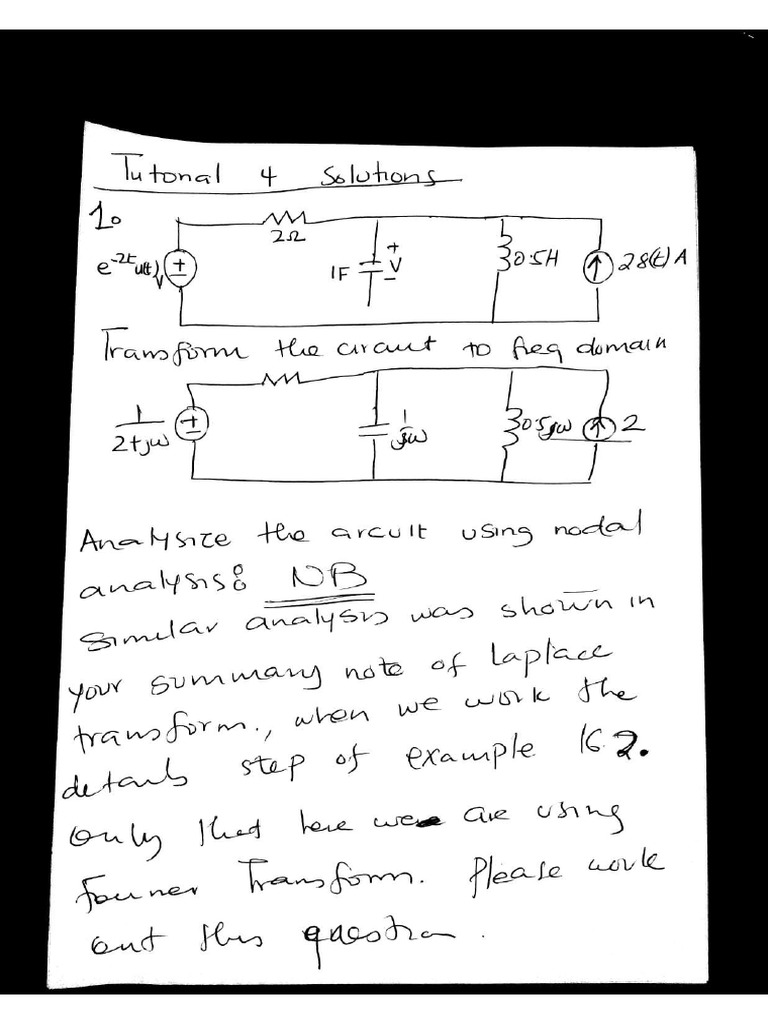 Tutorial 4 Solutions
1.
2Ω
e^-2t u(t) V
+
-
1F
+
V
-
0.5H
2δ(t) A
Transform the circuit to freq domain
1/2+jw
+
-
1/jw
0.5jw
2
Analysize the circuit using nodal
analysis: NB
Similar analysis was shown in
your summary note of laplace
transform., when we work the
details step of example 16.2.
Only that here we are using
Fourier Transform. Please work
out this question.